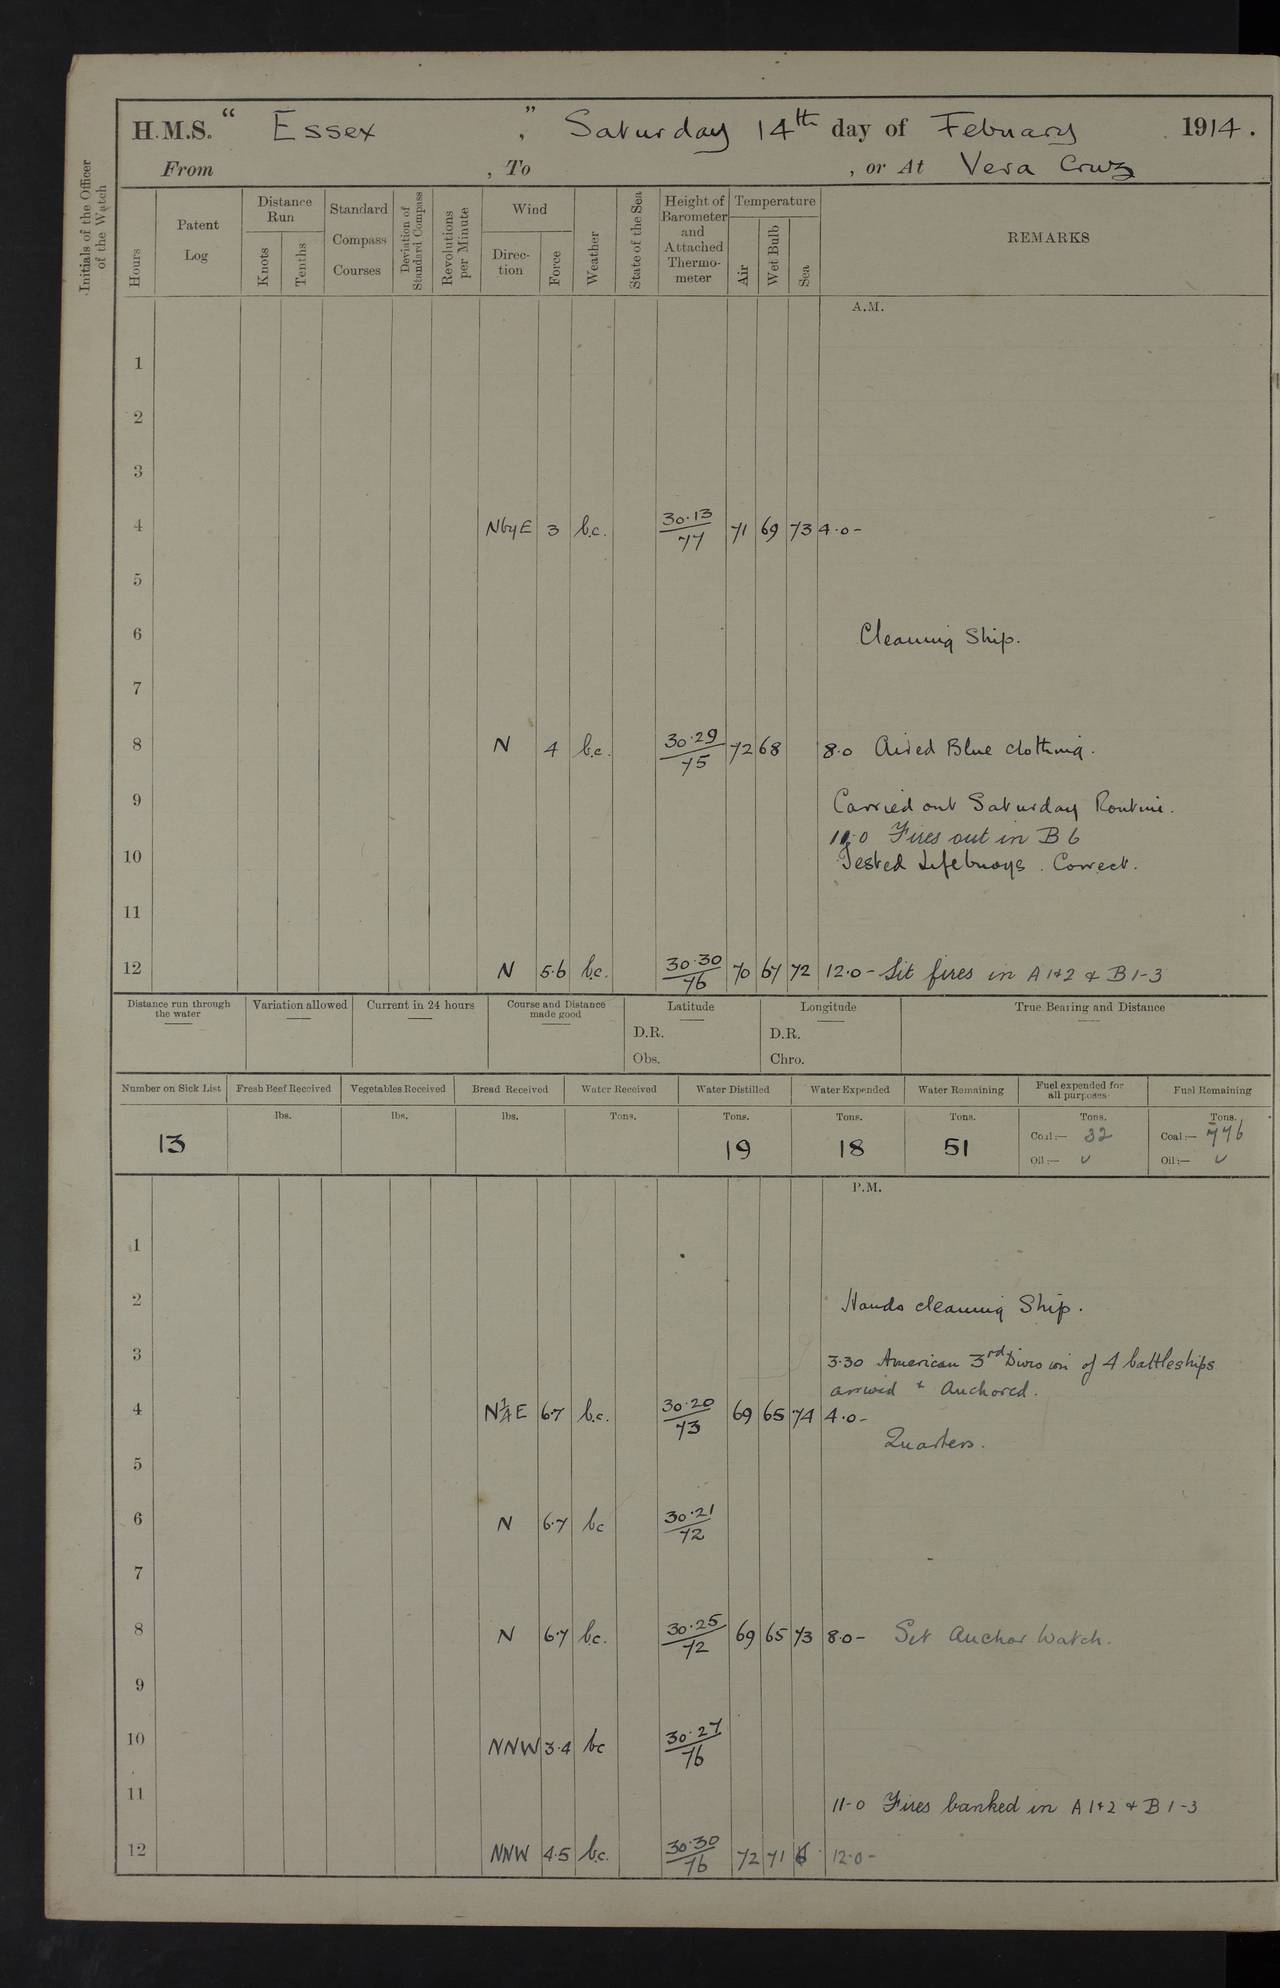 H.M.S. " Essex ," Saturday 14th day of Febuary 1914.
From , To , or At Vera Cruz
Initials of the Officer of the Watch
Hours
Patent Log
Distance Run
Knots
Tenths
Standard Compass Courses
Deviation of Standard Compass
Revolutions per Minute
Wind
Direc-tion
Force
Weather
State of the Sea
Height of Barometer and Attached Thermo-meter
Temperature
Air
Wet Bulb
Sea
REMARKS
A.M.
1
2
3
4 NbyE 3 b.c. 30.13/77 71 69 73 4.0-
5
6 Cleaning Ship.
7
8 N 4 b.c. 30.29/75 72 68 8.0 Aired Blue clothing.
9 Carried out Saturday Routine.
11.0 Fires out in B 6
10 Tested Lifebuoys. Correct.
11
12 N 5.6 b.c. 30.30/76 70 67 72 12.0- Lit fires in A 1+2 & B 1-3
Distance run through the water
Variation allowed
Current in 24 hours
Course and Distance made good
Latitude
D.R.
Obs.
Longitude
D.R.
Chro.
True Bearing and Distance
Number on Sick List
Fresh Beef Received
Vegetables Received
Bread Received
Water Received
Water Distilled
Water Expended
Water Remaining
Fuel expended for all purposes
Fuel Remaining
lbs. lbs. lbs. Tons. Tons. Tons. Tons. Tons. Tons.
13 19 18 51 Coal:— 32 Coal:— 776
Oil:— Oil:—
P.M.
1
2 Hands cleaning Ship.
3 3.30 American 3rd Division of 4 battleships
arrived + Anchored.
4 N¼E 6.7 b.c. 30.20/73 69 65 74 4.0-
Quarters.
5
6 N 6.7 bc 30.21/72
7
8 N 6.7 b.c. 30.25/72 69 65 73 8.0- Set Anchor Watch.
9
10 NNW 3.4 bc 30.27/76
11 11-0 Fires banked in A 1+2 + B 1-3
12 NNW 4.5 b.c. 30.30/76 72 71 12.0-